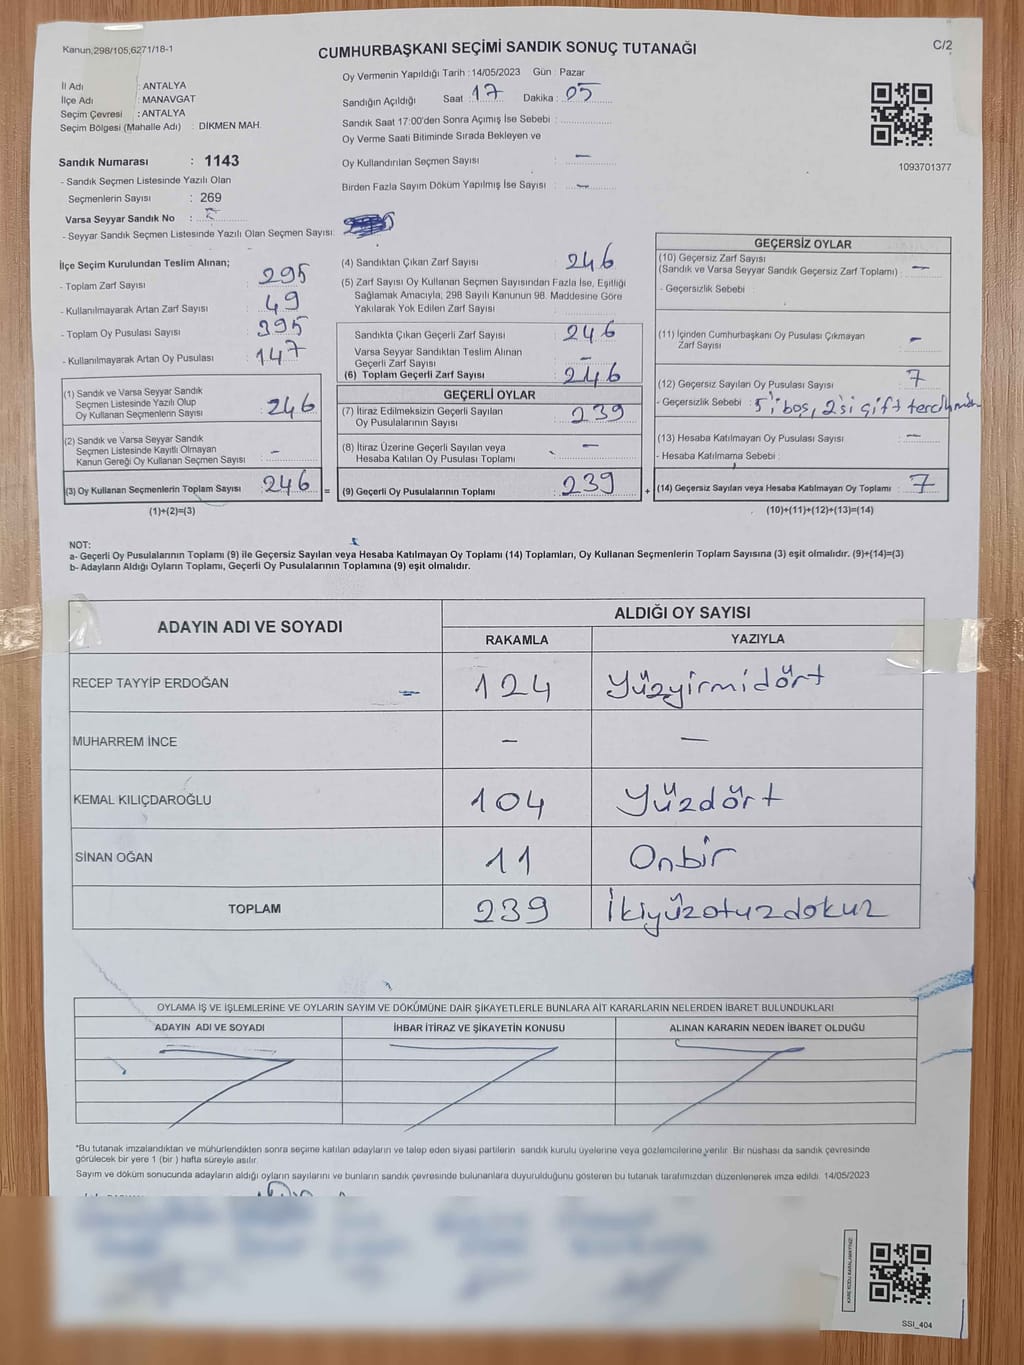 Kanun,298/105,6271/18-1
CUMHURBAŞKANI SEÇİMİ SANDIK SONUÇ TUTANAĞI
C/2
İl Adı : ANTALYA
İlçe Adı : MANAVGAT
Seçim Çevresi : ANTALYA
Seçim Bölgesi (Mahalle Adı) : DİKMEN MAH.
Sandık Numarası : 1143
- Sandık Seçmen Listesinde Yazılı Olan
Seçmenlerin Sayısı : 269
Varsa Seyyar Sandık No :
- Seyyar Sandık Seçmen Listesinde Yazılı Olan Seçmen Sayısı:
Oy Vermenin Yapıldığı Tarih : 14/05/2023 Gün : Pazar
Sandığın Açıldığı Saat 17 Dakika : 05
Sandık Saat 17:00'den Sonra Açımış İse Sebebi :
Oy Verme Saati Bitiminde Sırada Bekleyen ve
Oy Kullandırılan Seçmen Sayısı : —
Birden Fazla Sayım Döküm Yapılmış İse Sayısı : —
1093701377
İlçe Seçim Kurulundan Teslim Alınan;
- Toplam Zarf Sayısı : 295
- Kullanılmayarak Artan Zarf Sayısı : 49
- Toplam Oy Pusulası Sayısı : 395
- Kullanılmayarak Artan Oy Pusulası : 147
(1) Sandık ve Varsa Seyyar Sandık
Seçmen Listesinde Yazılı Olup
Oy Kullanan Seçmenlerin Sayısı : 246
(2) Sandık ve Varsa Seyyar Sandık
Seçmen Listesinde Kayıtlı Olmayan
Kanun Gereği Oy Kullanan Seçmen Sayısı : -
(3) Oy Kullanan Seçmenlerin Toplam Sayısı : 246 =
(1)+(2)=(3)
(4) Sandıktan Çıkan Zarf Sayısı : 246
(5) Zarf Sayısı Oy Kullanan Seçmen Sayısından Fazla İse, Eşitliği
Sağlamak Amacıyla, 298 Sayılı Kanunun 98. Maddesine Göre
Yakılarak Yok Edilen Zarf Sayısı :
Sandıkta Çıkan Geçerli Zarf Sayısı : 246
Varsa Seyyar Sandıktan Teslim Alınan
Geçerli Zarf Sayısı : -
(6) Toplam Geçerli Zarf Sayısı : 246
GEÇERLİ OYLAR
(7) İtiraz Edilmeksizin Geçerli Sayılan
Oy Pusulalarının Sayısı : 239
(8) İtiraz Üzerine Geçerli Sayılan veya
Hesaba Katılan Oy Pusulası Toplamı : —
(9) Geçerli Oy Pusulalarının Toplamı : 239 +
GEÇERSİZ OYLAR
(10) Geçersiz Zarf Sayısı
(Sandık ve Varsa Seyyar Sandık Geçersiz Zarf Toplamı) : —
- Geçersizlik Sebebi :
(11) İçinden Cumhurbaşkanı Oy Pusulası Çıkmayan
Zarf Sayısı : -
(12) Geçersiz Sayılan Oy Pusulası Sayısı : 7
- Geçersizlik Sebebi : 5'i boş, 2'si çift tercihten
(13) Hesaba Katılmayan Oy Pusulası Sayısı : —
- Hesaba Katılmama Sebebi :
(14) Geçersiz Sayılan veya Hesaba Katılmayan Oy Toplamı : 7
(10)+(11)+(12)+(13)=(14)
NOT:
a- Geçerli Oy Pusulalarının Toplamı (9) ile Geçersiz Sayılan veya Hesaba Katılmayan Oy Toplamı (14) Toplamları, Oy Kullanan Seçmenlerin Toplam Sayısına (3) eşit olmalıdır. (9)+(14)=(3)
b- Adayların Aldığı Oyların Toplamı, Geçerli Oy Pusulalarının Toplamına (9) eşit olmalıdır.
ADAYIN ADI VE SOYADI
ALDIĞI OY SAYISI
RAKAMLA YAZIYLA
RECEP TAYYİP ERDOĞAN 124 Yüzyirmidört
MUHARREM İNCE — —
KEMAL KILIÇDAROĞLU 104 Yüzdört
SİNAN OĞAN 11 Onbir
TOPLAM 239 İkiyüzotuzdokuz
OYLAMA İŞ VE İŞLEMLERİNE VE OYLARIN SAYIM VE DÖKÜMÜNE DAİR ŞİKAYETLERLE BUNLARA AİT KARARLARIN NELERDEN İBARET BULUNDUKLARI
ADAYIN ADI VE SOYADI İHBAR İTİRAZ VE ŞİKAYETİN KONUSU ALINAN KARARIN NEDEN İBARET OLDUĞU
*Bu tutanak imzalandıktan ve mühürlendikten sonra seçime katılan adayların ve talep eden siyasi partilerin sandık kurulu üyelerine veya gözlemcilerine verilir. Bir nüshası da sandık çevresinde
görülecek bir yere 1 (bir ) hafta süreyle asılır.
Sayım ve döküm sonucunda adayların aldığı oyların sayılarını ve bunların sandık çevresinde bulunanlara duyurulduğunu gösteren bu tutanak tarafımızdan düzenlenerek imza edildi. 14/05/2023
KARE KODU KARALAMAYINIZ!
SSI_404